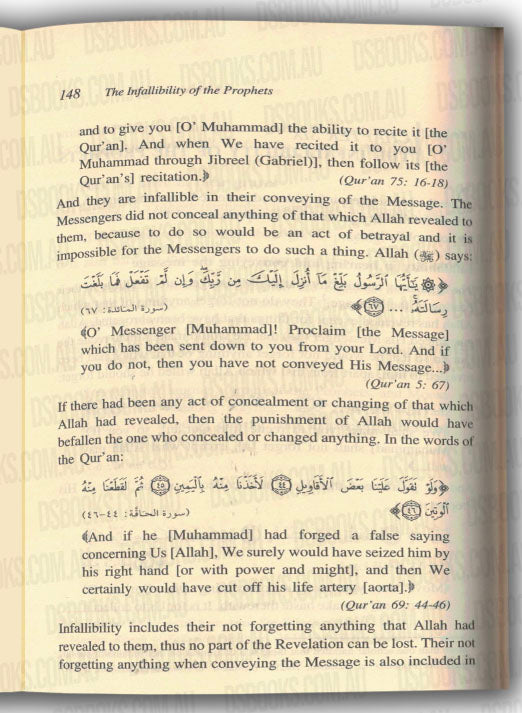 148 The Infallibility of the Prophets
and to give you [O' Muhammad] the ability to recite it [the
Qur'an]. And when We have recited it to you [O'
Muhammad through Jibreel (Gabriel)], then follow its [the
Qur'an's] recitation.﴾
(Qur'an 75: 16-18)
And they are infallible in their conveying of the Message. The
Messengers did not conceal anything of that which Allah revealed to
them, because to do so would be an act of betrayal and it is
impossible for the Messengers to do such a thing. Allah (ﷻ) says:
﴿۞ يَٰٓأَيُّهَا ٱلرَّسُولُ بَلِّغْ مَآ أُنزِلَ إِلَيْكَ مِن رَّبِّكَ ۖ وَإِن لَّمْ تَفْعَلْ فَمَا بَلَّغْتَ
رِسَالَتَهُۥ ... ٦٧﴾
(سورة المائدة: ٦٧)
﴿O' Messenger [Muhammad]! Proclaim [the Message]
which has been sent down to you from your Lord. And if
you do not, then you have not conveyed His Message...﴾
(Qur'an 5: 67)
If there had been any act of concealment or changing of that which
Allah had revealed, then the punishment of Allah would have
befallen the one who concealed or changed anything. In the words of
the Qur'an:
﴿وَلَوْ تَقَوَّلَ عَلَيْنَا بَعْضَ ٱلْأَقَاوِيلِ ٤٤ لَأَخَذْنَا مِنْهُ بِٱلْيَمِينِ ٤٥ ثُمَّ لَقَطَعْنَا مِنْهُ
ٱلْوَتِينَ ٤٦﴾
(سورة الحاقّة: ٤٤-٤٦)
﴿And if he [Muhammad] had forged a false saying
concerning Us [Allah], We surely would have seized him by
his right hand [or with power and might], and then We
certainly would have cut off his life artery [aorta].﴾
(Qur'an 69: 44-46)
Infallibility includes their not forgetting anything that Allah had
revealed to them, thus no part of the Revelation can be lost. Their not
forgetting anything when conveying the Message is also included in
DSBOOKS.COM.AU